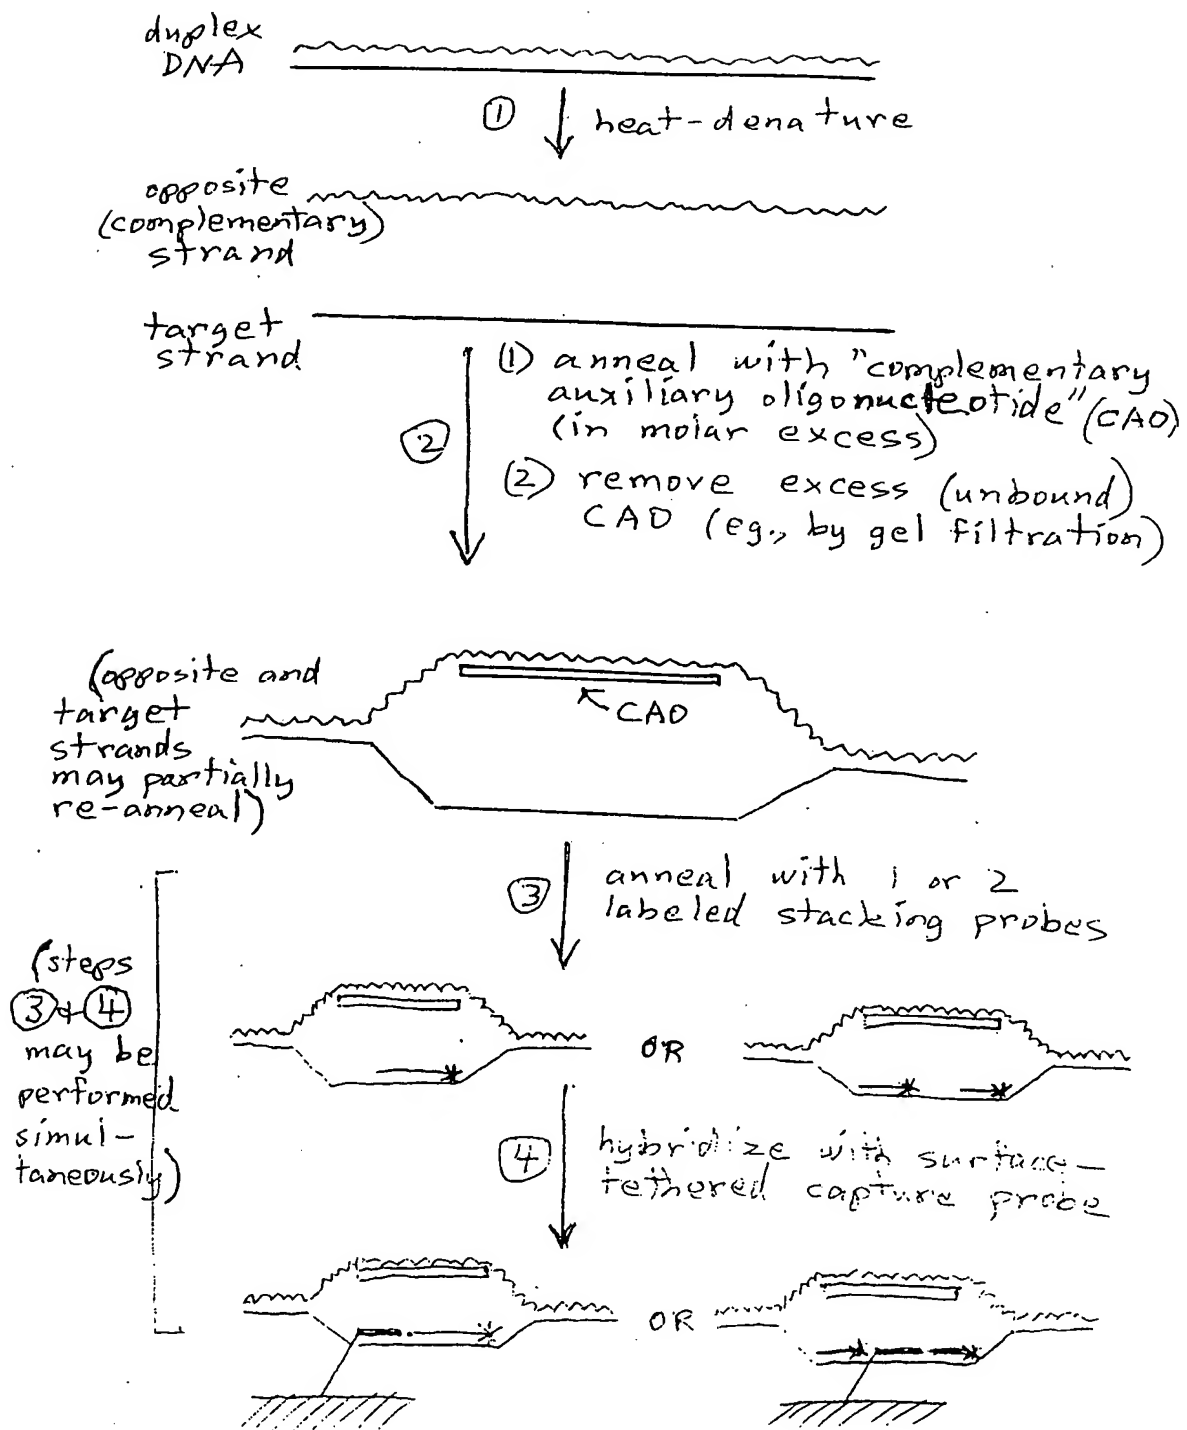 duplex
DNA
① heat-denature
opposite
(complementary)
strand
target
strand
② (1) anneal with "complementary
auxiliary oligonucleotide" (CAO)
(in molar excess)
(2) remove excess (unbound)
CAO (eg., by gel filtration)
(opposite and
target
strands
may partially
re-anneal)
CAO
③ anneal with 1 or 2
labeled stacking probes
(steps
③ & ④
may be
performed
simul-
taneously)
OR
④ hybridize with surface-
tethered capture probe
OR